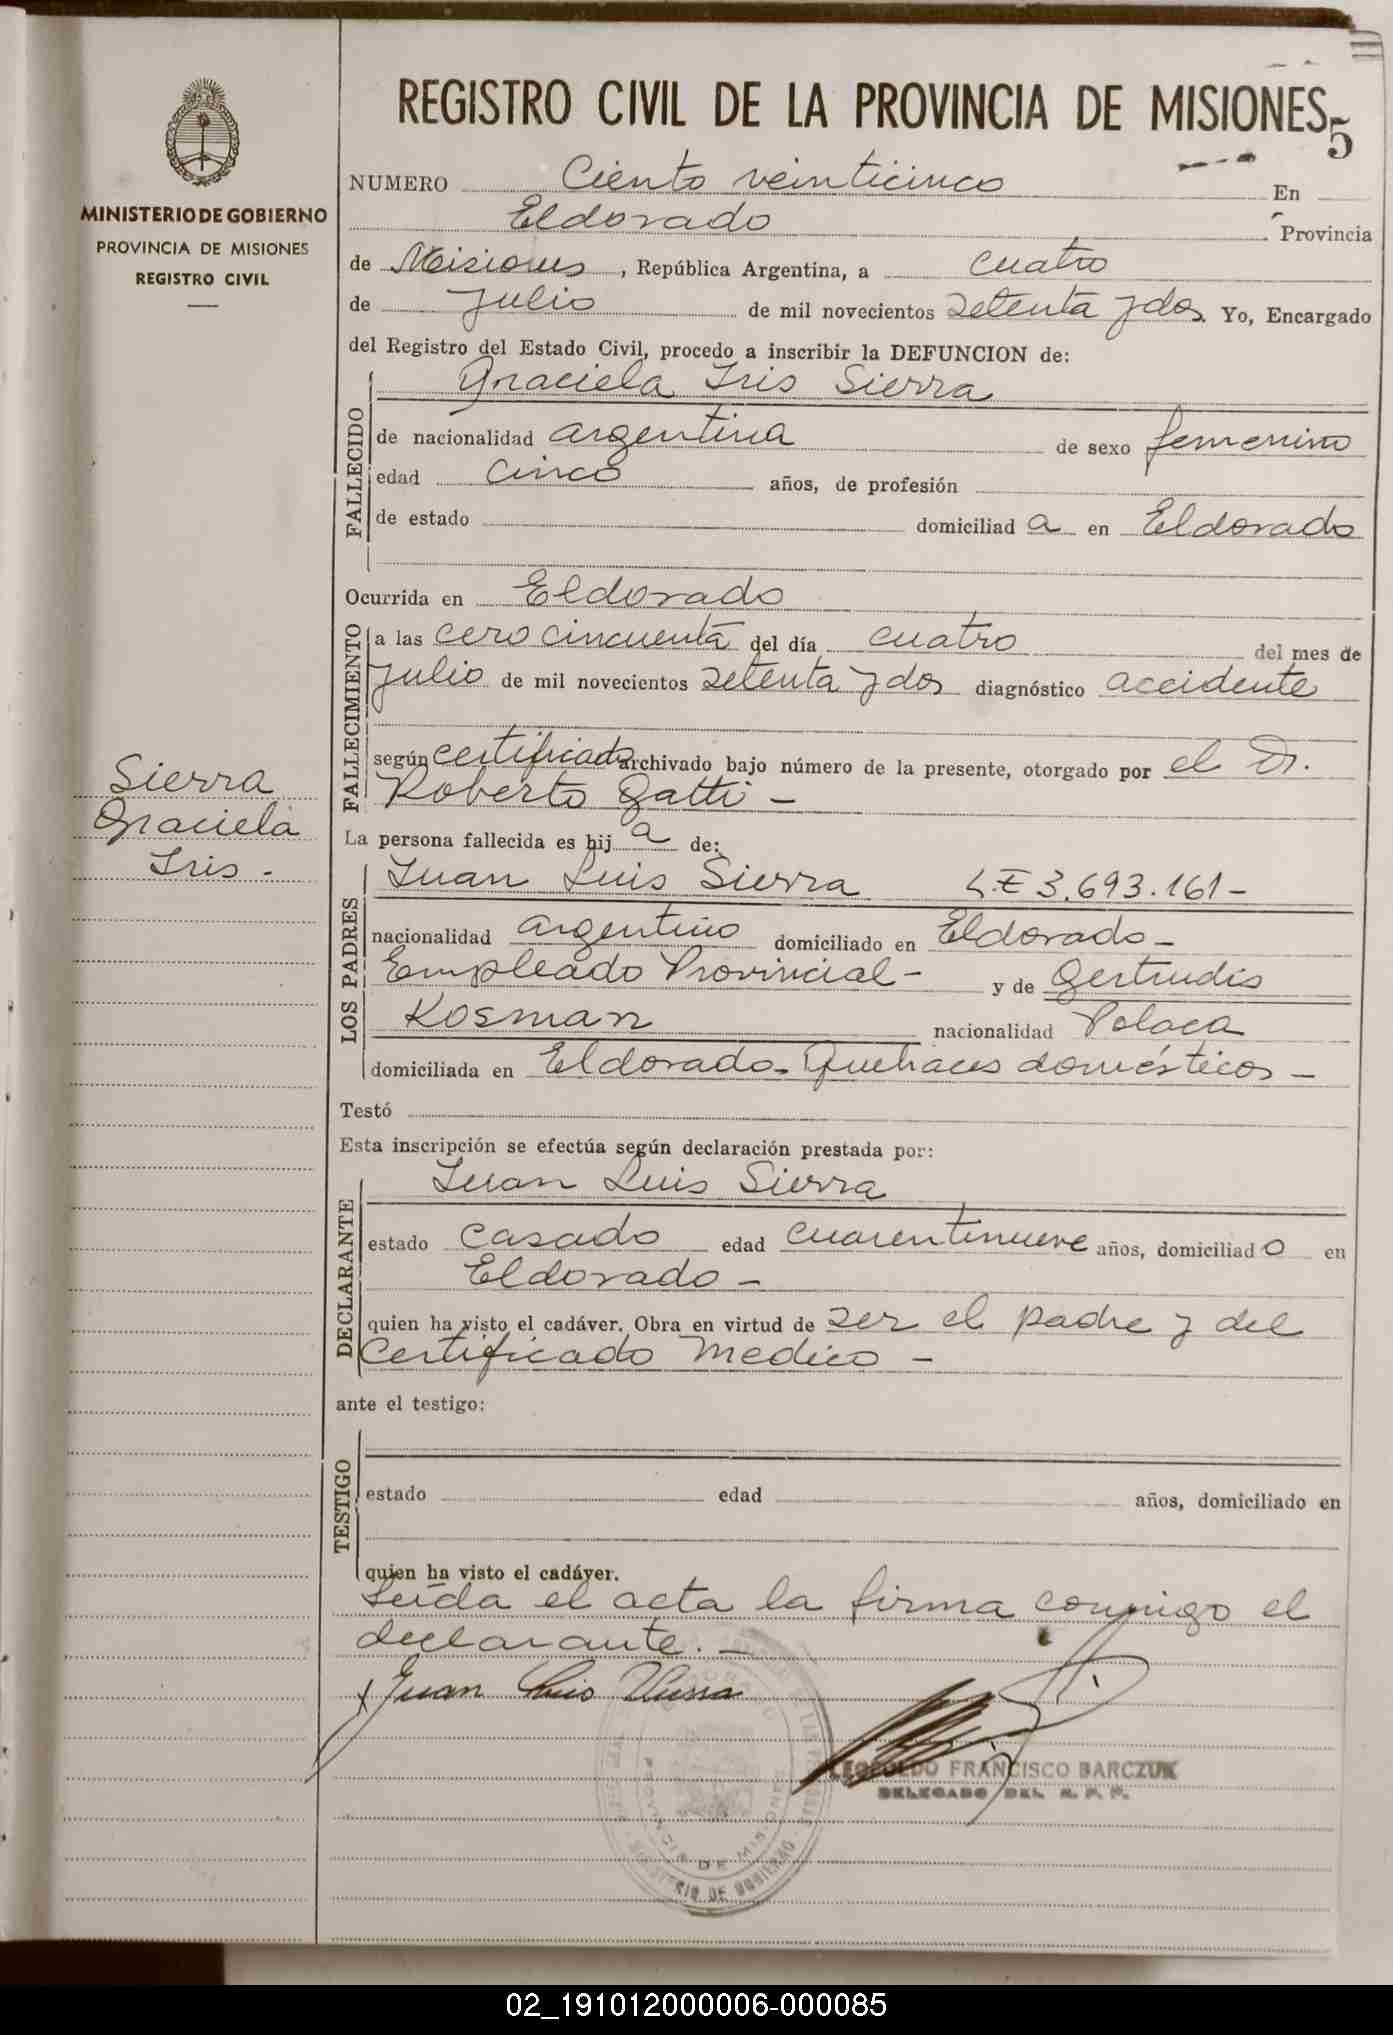 REGISTRO CIVIL DE LA PROVINCIA DE MISIONES
5
MINISTERIO DE GOBIERNO
PROVINCIA DE MISIONES
REGISTRO CIVIL
NUMERO Ciento veinticinco En
Eldorado Provincia
de Misiones, República Argentina, a cuatro
de Julio de mil novecientos setenta y dos Yo, Encargado
del Registro del Estado Civil, procedo a inscribir la DEFUNCION de:
Graciela Iris Sierra
FALLECIDO
de nacionalidad argentina de sexo femenino
edad cinco años, de profesión
de estado domiciliad a en Eldorado
Ocurrida en Eldorado
FALLECIMIENTO
a las cero cincuenta del día cuatro del mes de
Julio de mil novecientos setenta y dos diagnóstico accidente
según certificado archivado bajo número de la presente, otorgado por el Dr.
Roberto Gatti -
Sierra
Graciela
Iris -
La persona fallecida es hij a de:
LOS PADRES
Juan Luis Sierra L.E 3.693.161-
nacionalidad argentino domiciliado en Eldorado -
Empleado Provincial - y de Gertrudis
Kosman nacionalidad Polaca
domiciliada en Eldorado - Quehaces domésticos -
Testó
Esta inscripción se efectúa según declaración prestada por:
DECLARANTE
Juan Luis Sierra
estado casado edad cuarentinueve años, domiciliad o en
Eldorado -
quien ha visto el cadáver. Obra en virtud de ser el padre y del
Certificado Medico -
ante el testigo:
TESTIGO
estado edad años, domiciliado en
quien ha visto el cadáver.
Leída el acta la firma conmigo el
declarante. -
Juan Luis Sierra
LEOPOLDO FRANCISCO BARCZUK
DELEGADO DEL R. P. P.
PROVINCIA DE MISIONES
MINISTERIO DE GOBIERNO
02_191012000006-000085